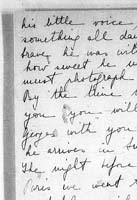 his little voice
something all da
brave he was wit
how sweet he w
must photograph
By the time
you you will
george with you
he arrives in
The night before
Paris we went t